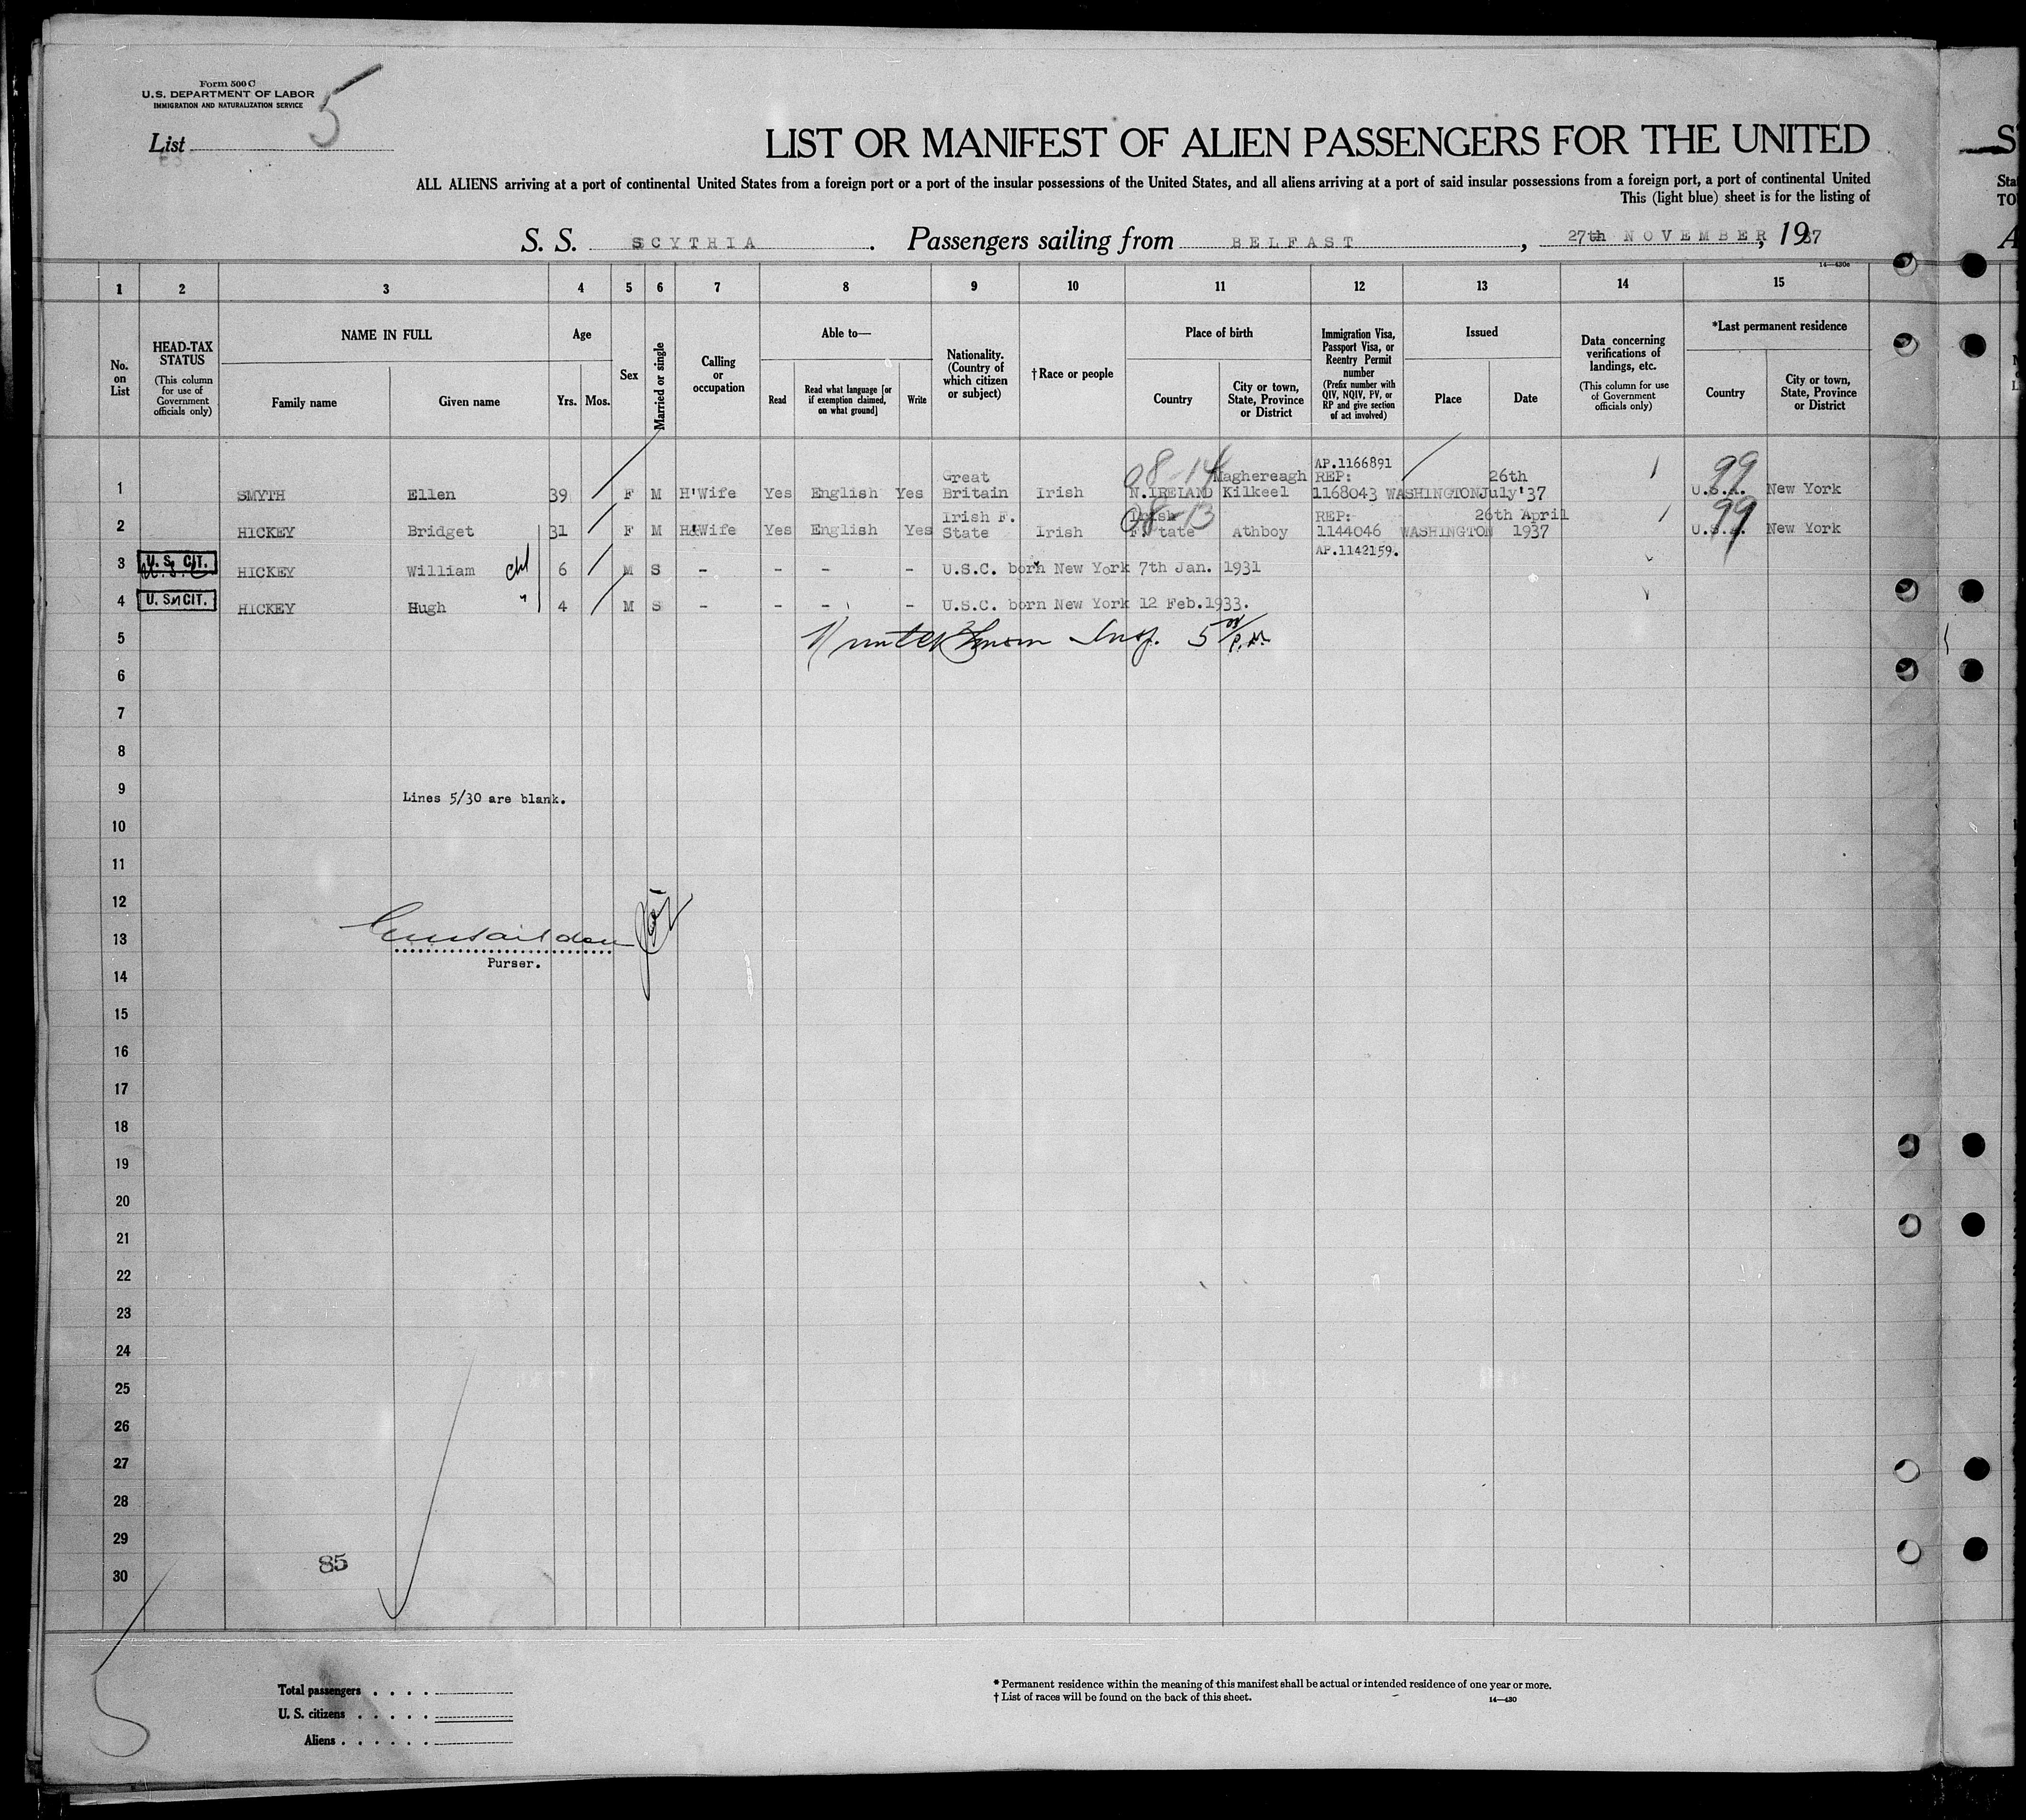 Form 500 C
U.S. DEPARTMENT OF LABOR
IMMIGRATION AND NATURALIZATION SERVICE
List 5
LIST OR MANIFEST OF ALIEN PASSENGERS FOR THE UNITED
ALL ALIENS arriving at a port of continental United States from a foreign port or a port of the insular possessions of the United States, and all aliens arriving at a port of said insular possessions from a foreign port, a port of continental United
This (light blue) sheet is for the listing of
S. S. SCYTHIA . Passengers sailing from BELFAST , 27th NOVEMBER, 1937
14—430c
1 2 3 4 5 6 7 8 9 10 11 12 13 14 15
No. on List
HEAD-TAX STATUS
(This column for use of Government officials only)
NAME IN FULL
Family name Given name
Age
Yrs. Mos.
Sex
Married or single
Calling or occupation
Able to—
Read
Read what language [or if exemption claimed, on what ground]
Write
Nationality. (Country of which citizen or subject)
†Race or people
Place of birth
Country
City or town, State, Province or District
Immigration Visa, Passport Visa, or Reentry Permit number
(Prefix number with QIV, NQIV, PV, or RP and give section of act involved)
Issued
Place Date
Data concerning verifications of landings, etc.
(This column for use of Government officials only)
*Last permanent residence
Country
City or town, State, Province or District
08-14 Maghereagh AP.1166891 99
Great REP: 26th
1 SMYTH Ellen 39 F M H'Wife Yes English Yes Britain Irish N.IRELAND Kilkeel 1168043 WASHINGTON July'37 U.S.A. New York
Irish F. Irish 08-13 REP: 26th April 99
2 HICKEY Bridget 31 F M H'Wife Yes English Yes State Irish F.State Athboy 1144046 WASHINGTON 1937 U.S.A. New York
AP.1142159.
3 U.S. CIT. HICKEY William chl 6 M S - - - - U.S.C. born New York 7th Jan. 1931
4 U.S. CIT. HICKEY Hugh " 4 M S - - - - U.S.C. born New York 12 Feb.1933.
5 Insp. 5 P.M.
6
7
8
9
Lines 5/30 are blank.
10
11
12
13
Purser.
14
15
16
17
18
19
20
21
22
23
24
25
26
27
28
29
85
30
Total passengers . . . .
U. S. citizens . . . . .
Aliens . . . . . .
* Permanent residence within the meaning of this manifest shall be actual or intended residence of one year or more.
† List of races will be found on the back of this sheet.
14—430